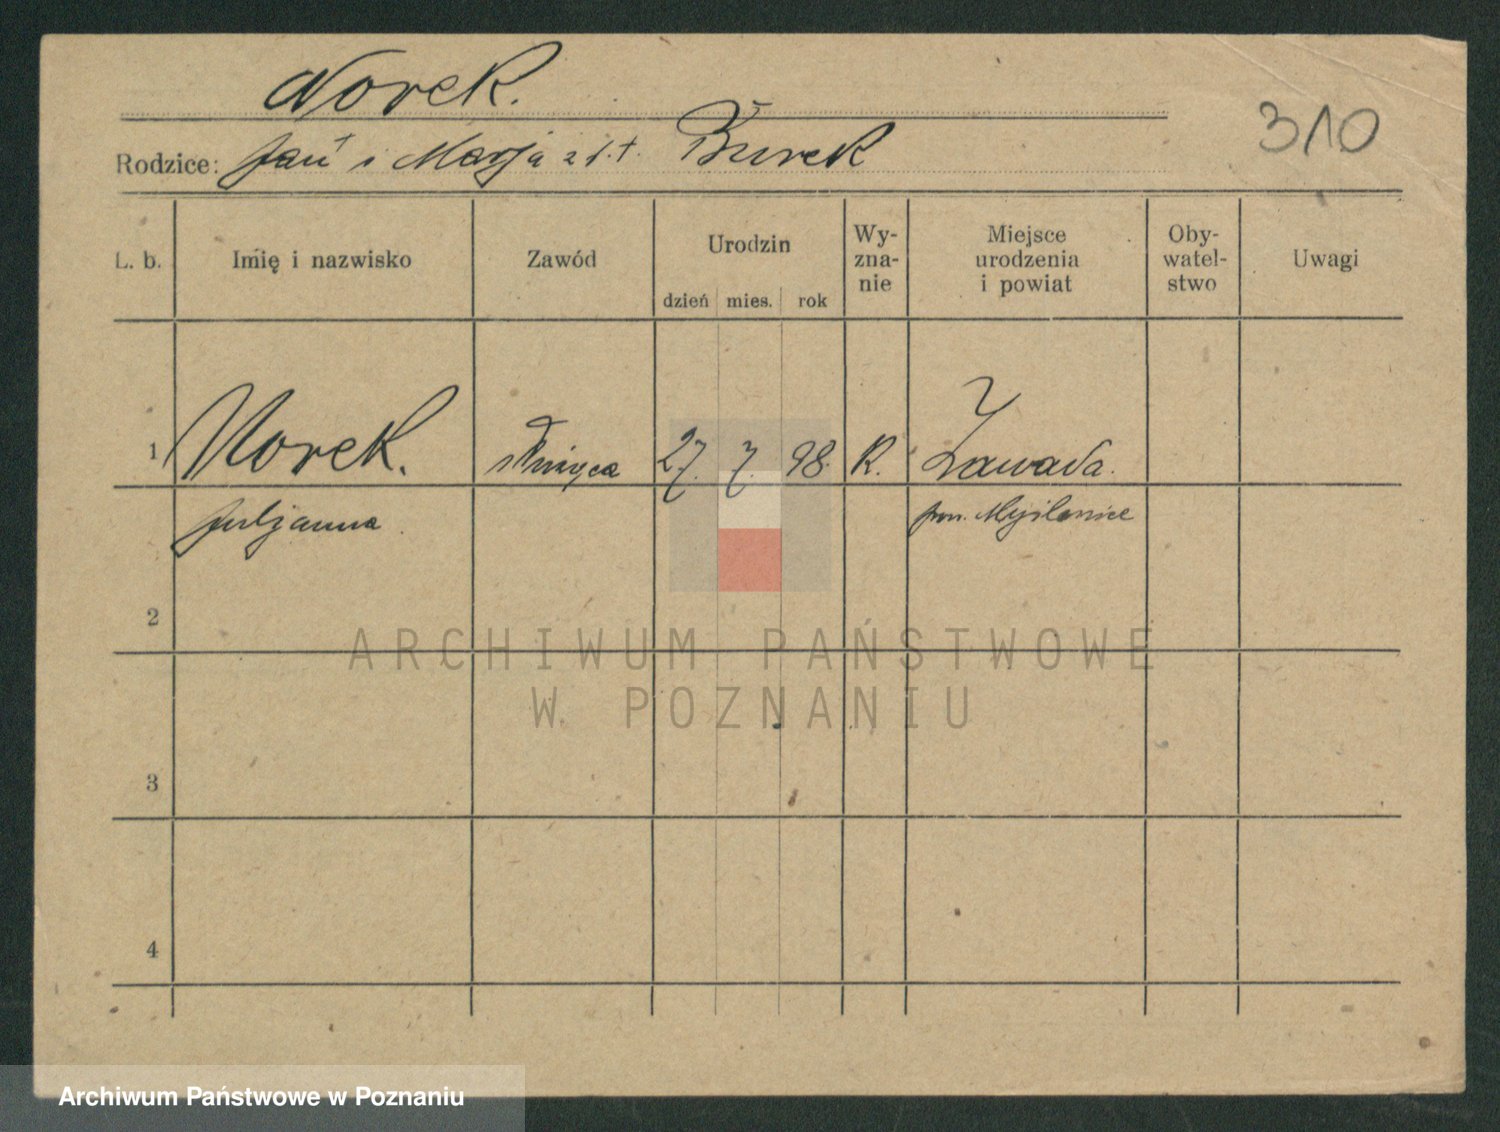 Norek.
310
Rodzice: Jan i Marja z d. t. Burek
L. b. Imię i nazwisko Zawód Urodzin dzień mies. rok Wy-zna-nie Miejsce urodzenia i powiat Oby-watel-stwo Uwagi
1 Norek. służąca 27. 7. 98. R. Zawada.
Juljanna pow. Myślenice
2
ARCHIWUM PAŃSTWOWE
W POZNANIU
3
4
Archiwum Państwowe w Poznaniu